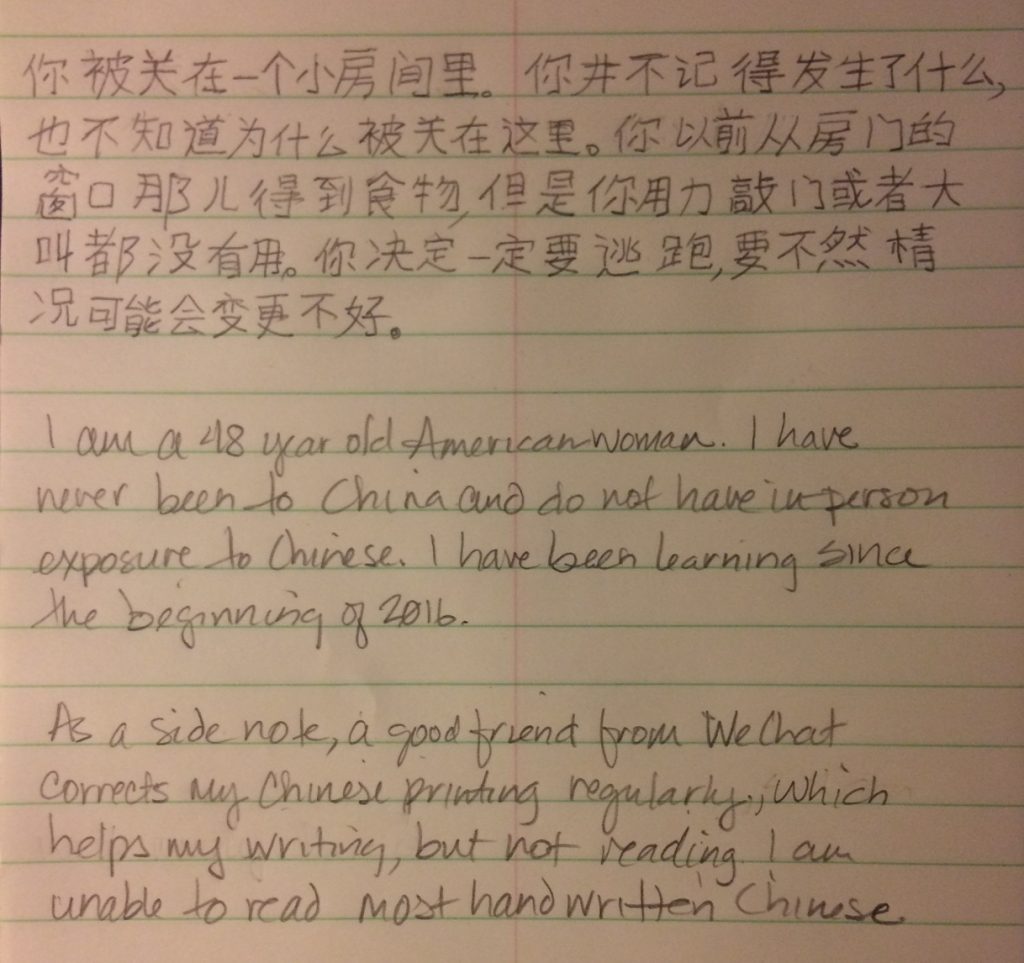 你被关在一个小房间里。你并不记得发生了什么,
也不知道为什么被关在这里。你以前从房门的
窗口那儿得到食物,但是你用力敲门或者大
叫都没有用。你决定一定要逃跑,要不然情
况可能会变更不好。
I am a 48 year old American woman. I have
never been to China and do not have in-person
exposure to Chinese. I have been learning since
the beginning of 2016.
As a side note, a good friend from WeChat
corrects my Chinese printing regularly, which
helps my writing, but not reading. I am
unable to read most handwritten Chinese.